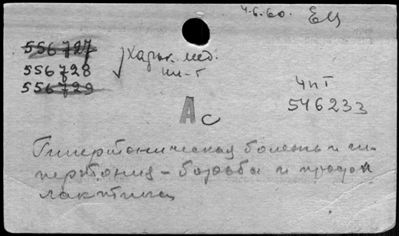 4.6.60. Ец
556727
556728
556729
Харьк. мед.
ин-т
А с
4 пТ
546233
Гипертоническая болезнь и ги-
пертония - борьба и проф
лактика